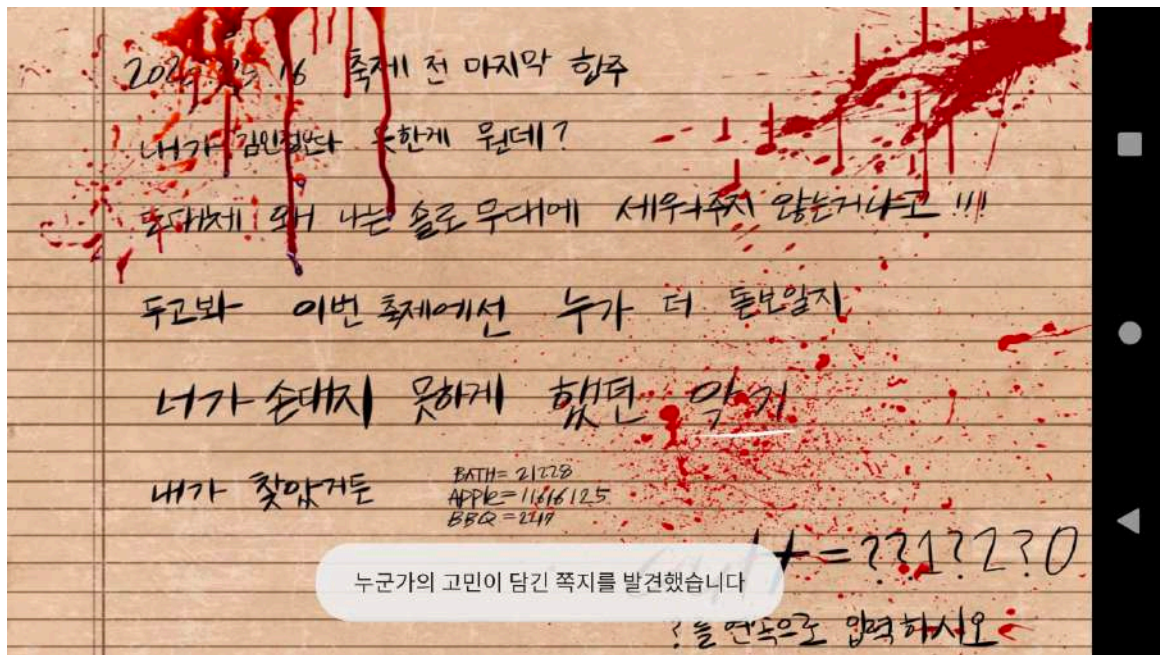 축제 전 마지막 합주
내가 못한게 뭔데?
도대체 왜 나는 솔로 무대에 세워주지 않는거냐고 !!!
두고봐 이번 축제에선 누가 더 돋보일지
너가 손대지 못하게 했던 악기
내가 찾았거든
BATH= 21228
APPLE=11616125
BBQ =2217
=??1?2?0
누군가의 고민이 담긴 쪽지를 발견했습니다
?를 연속으로 입력하시오